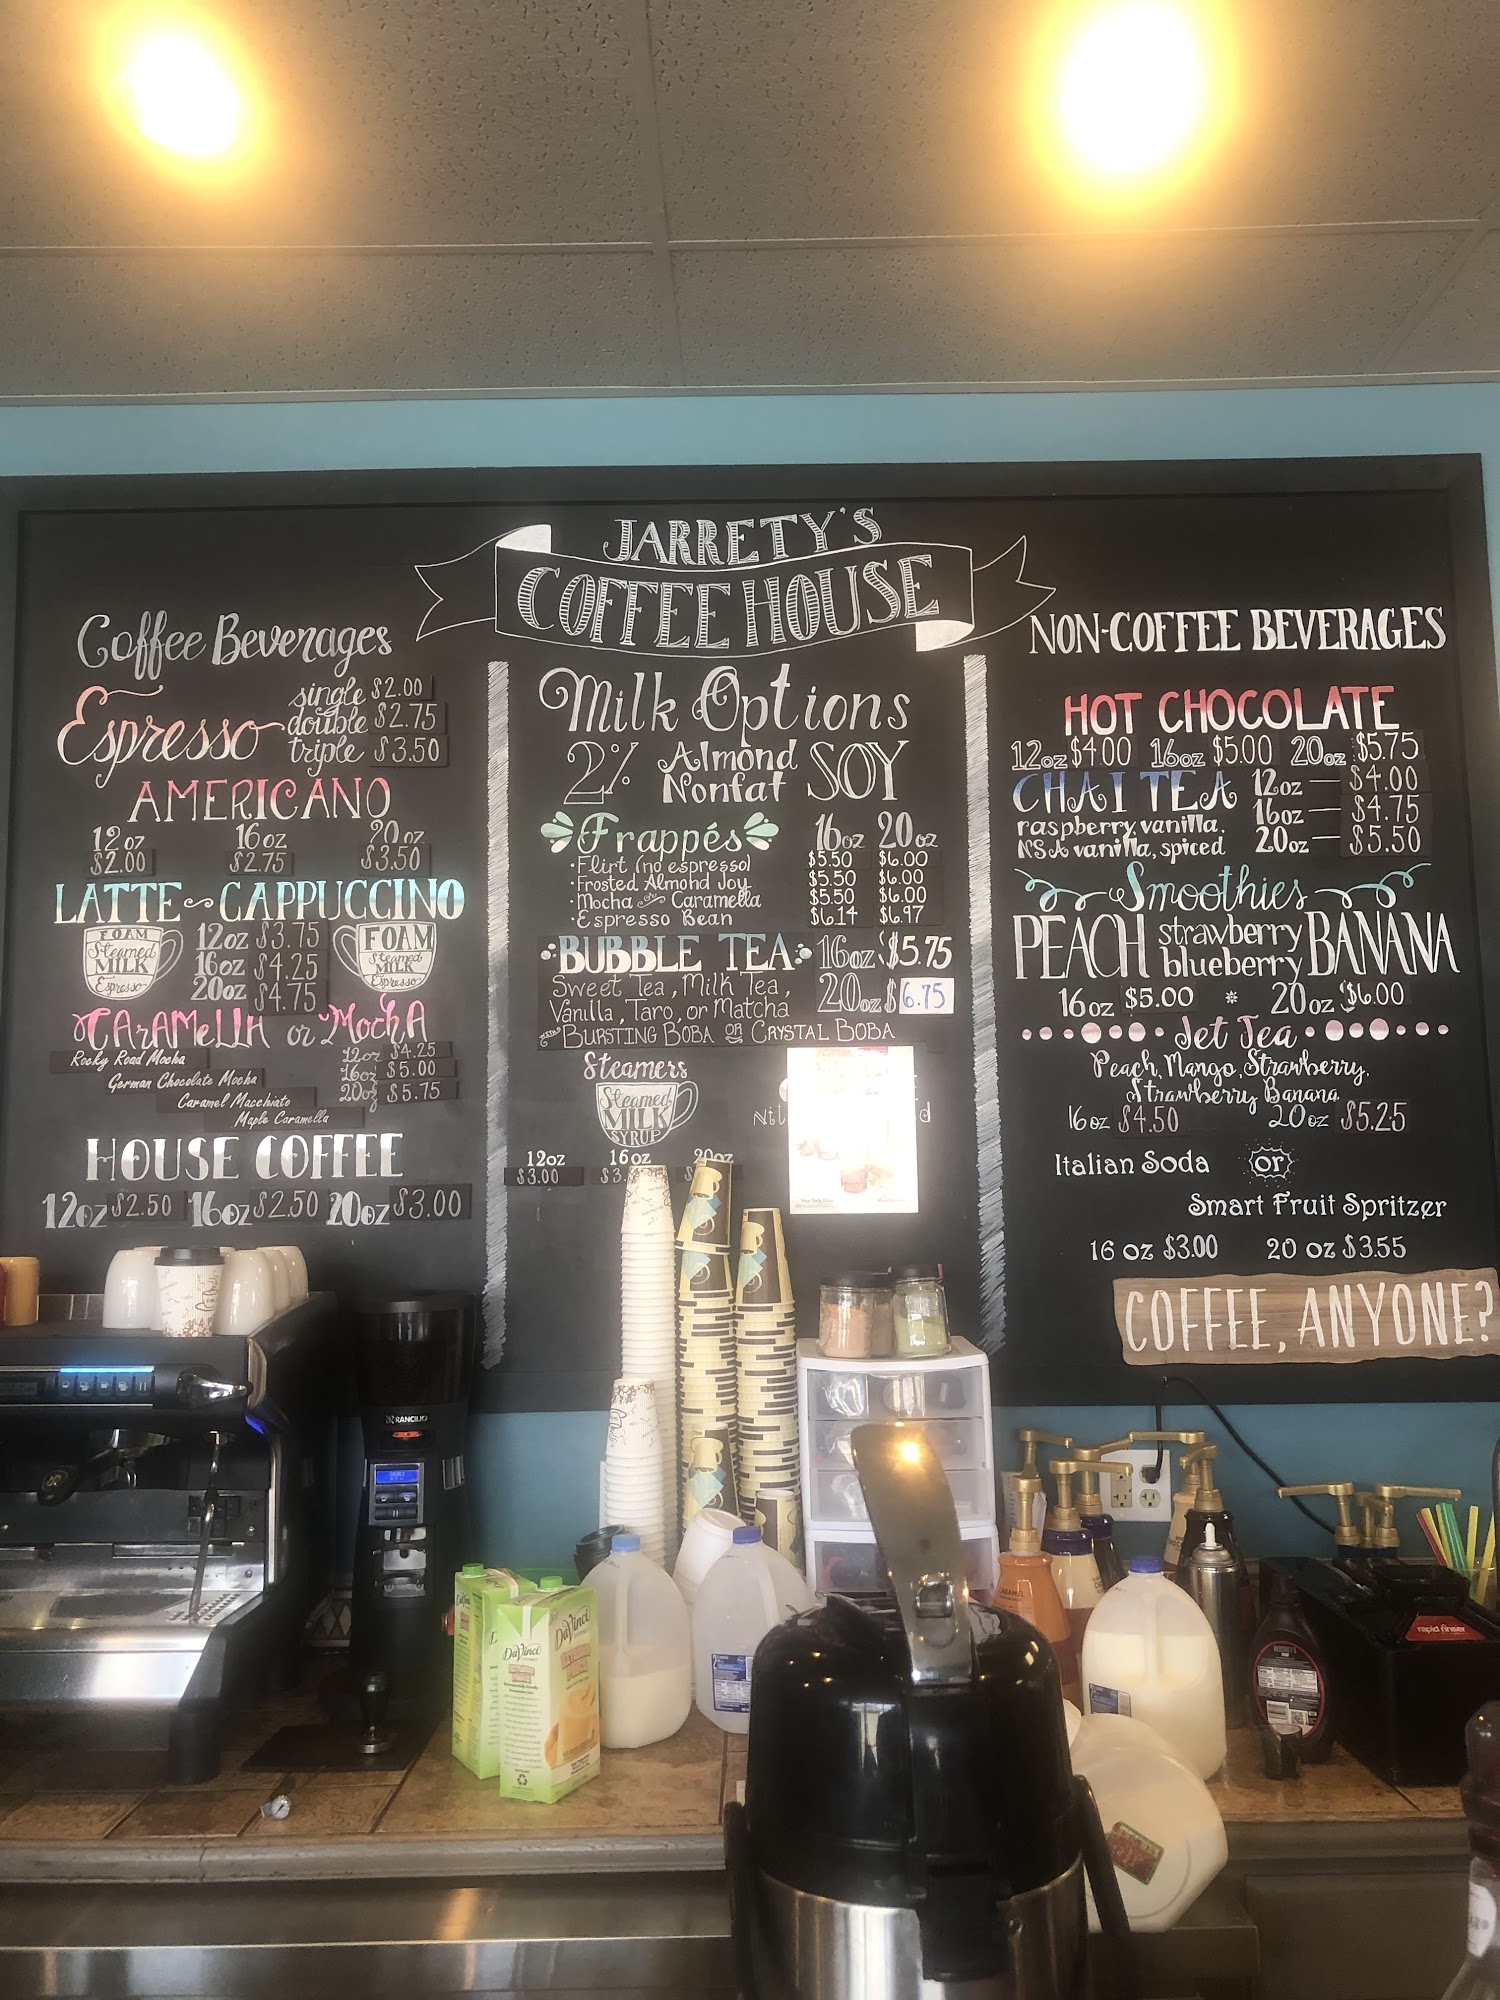 JARRETY'S
COFFEE HOUSE
Coffee Beverages
Espresso
single $2.00
double $2.75
triple $3.50
AMERICANO
12 oz 16 oz 20 oz
$2.00 $2.75 $3.50
LATTE CAPPUCCINO
FOAM
Steamed
MILK
Espresso
12oz $3.75
16oz $4.25
20oz $4.75
FOAM
Steamed
MILK
Espresso
CARAMELLA or MochA
Rocky Road Mocha
German Chocolate Mocha
Caramel Macchiato
Maple Caramella
12oz $4.25
16oz $5.00
20oz $5.75
HOUSE COFFEE
12oz $2.50 16oz $2.50 20oz $3.00
Milk Options
2% Almond SOY
Nonfat
Frappés 16oz 20oz
• Flirt (no espresso) $5.50 $6.00
• Frosted Almond Joy $5.50 $6.00
• Mocha or Caramella $5.50 $6.00
• Espresso Bean $6.14 $6.97
BUBBLE TEA 16oz $5.75
Sweet Tea, Milk Tea,
Vanilla, Taro, or Matcha
20oz $6.75
with BURSTING BOBA OR CRYSTAL BOBA
Steamers
Steamed
MILK
SYRUP
12oz 16oz 20oz
$3.00 $3.
NON-COFFEE BEVERAGES
HOT CHOCOLATE
12oz $4.00 16oz $5.00 20oz $5.75
CHAI TEA
raspberry, vanilla,
NSA vanilla, spiced
12oz — $4.00
16oz — $4.75
20oz — $5.50
Smoothies
PEACH strawberry BANANA
blueberry
16oz $5.00 * 20oz $6.00
Jet Tea
Peach, Mango, Strawberry,
Strawberry Banana
16oz $4.50 20oz $5.25
Italian Soda or
Smart Fruit Spritzer
16 oz $3.00 20 oz $3.55
COFFEE, ANYONE?
RANCILIO
DaVinci
DaVinci
CARAMEL
HERSHEY'S
rapid rinser